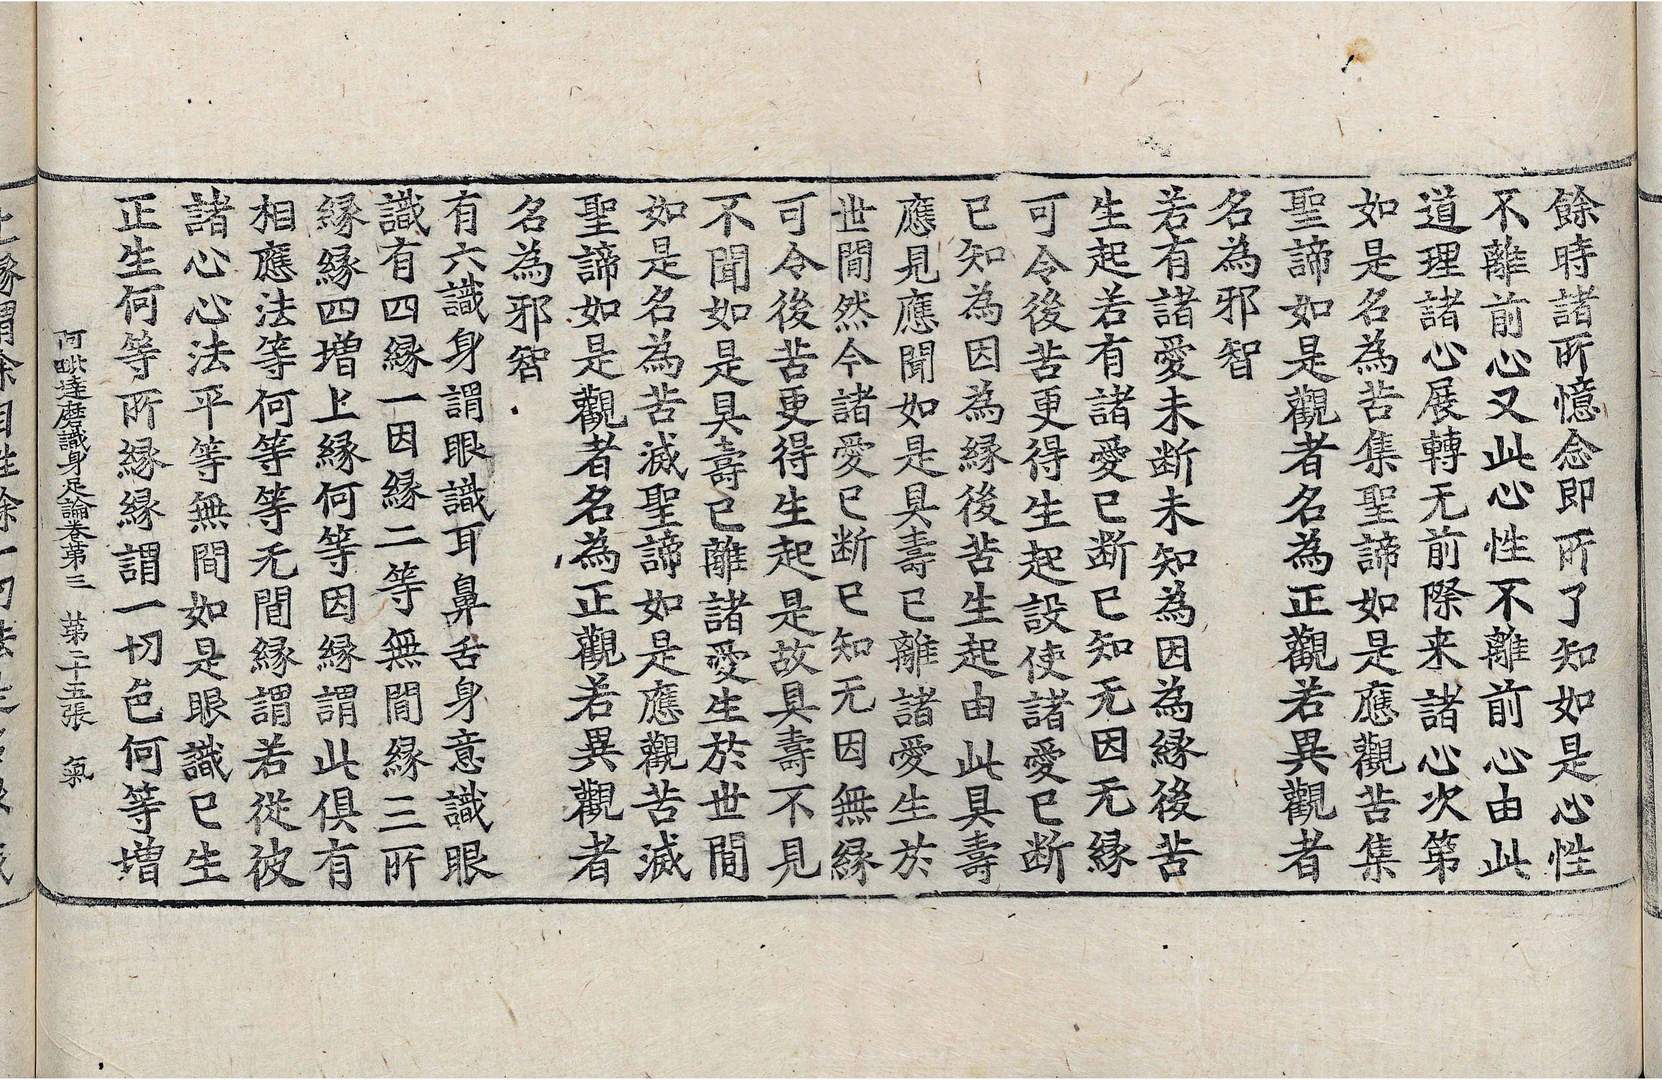 餘時諸所憶念即所了知如是心性
不離前心又此心性不離前心由此
道理諸心展轉无前際来諸心次第
如是名為苦集聖諦如是應觀苦集
聖諦如是觀者名為正觀若異觀者
名為邪智
若有諸愛未断未知為因為縁後苦
生起若有諸愛已断已知无因无縁
可令後苦更得生起設使諸愛已断
已知為因為縁後苦生起由此具壽
應見應聞如是具壽已離諸愛生於
世間然今諸愛已断已知无因無縁
可令後苦更得生起是故具壽不見
不聞如是具壽已離諸愛生於世間
如是名為苦滅聖諦如是應觀苦滅
聖諦如是觀者名為正觀若異觀者
名為邪智
有六識身謂眼識耳鼻舌身意識眼
識有四縁一因縁二等無間縁三所
縁縁四増上縁何等因縁謂此俱有
相應法等何等等无間縁謂若從彼
諸心心法平等無間如是眼識已生
正生何等所縁縁謂一切色何等増
阿毗達磨識身足論卷第三 苐二十五張 氣